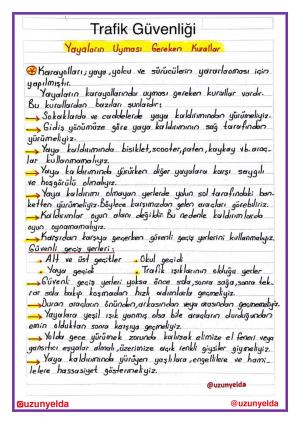 Trafik Güvenliği
Yayaların Uyması Gereken Kurallar
Karayolları; yaya, yolcu ve sürücülerin yararlanması için
yapılmıştır.
Yayaların karayollarında uyması gereken kurallar vardır.
Bu kurallardan bazıları şunlardır;
Sokaklarda ve caddelerde yaya kaldırımından yürümeliyiz.
Gidiş yönümüze göre yaya kaldırımının sağ tarafından
yürümeliyiz.
Yaya kaldırımında bisiklet, scooter, paten, kaykay vb. araç-
lar kullanmamalıyız.
Yaya kaldırımında yürürken diğer yayalara karşı saygılı
ve hoşgörülü olmalıyız.
Yaya kaldırımı olmayan yerlerde yolun sol tarafındaki ban-
ketten yürümeliyiz. Böylece karşımızdan gelen araçları görebiliriz.
Kaldırımlar oyun alanı değildir. Bu nedenle kaldırımlarda
oyun oynamamalıyız.
Karşıdan karşıya geçerken güvenli geçiş yerlerini kullanmalıyız.
Güvenli geçiş yerleri;
Alt ve üst geçitler . Okul geçidi
Yaya geçidi . Trafik ışıklarının olduğu yerler
Güvenli geçiş yerleri yoksa önce sola, sonra sağa, sonra tek-
rar sola bakıp koşmadan hızlı adımlarla geçmeliyiz.
Duran araçların önünden, arkasından veya arasından geçmemeliyiz.
Yayalara yeşil ışık yanmış olsa bile araçların durduğundan
emin olduktan sonra karşıya geçmeliyiz.
Yolda gece yürümek zorunda kalırsak elimize el feneri veya
yansıtıcı eşyalar almalı, üzerimize açık renkli giysiler giymeliyiz.
Yaya kaldırımında yürüyen yaşlılara, engellilere ve hami-
lelere hassasiyet göstermeliyiz.
@uzunyelda
@uzunyelda @uzunyelda